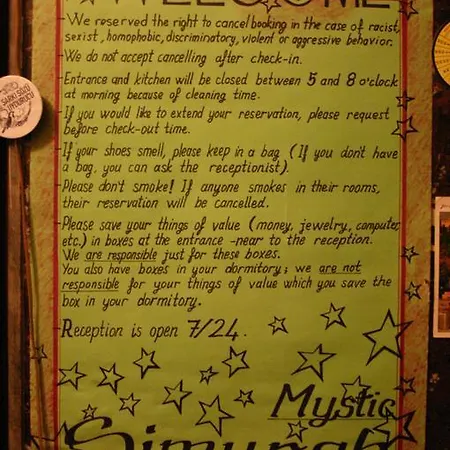 WELCOME
-We reserved the right to cancel booking in the case of racist,
sexist, homophobic, discriminatory, violent or aggressive behavior.
-We do not accept cancelling after check-in.
-Entrance and kitchen will be closed between 5 and 8 o'clock
at morning because of cleaning time.
-If you would like to extend your reservation, please request
before check-out time.
-If your shoes smell, please keep in a bag (If you don't have
a bag, you can ask the receptionist).
-Please don't smoke! If anyone smokes in their rooms,
their reservation will be cancelled.
-Please save your things of value (money, jewelry, computer,
etc.) in boxes at the entrance -near to the reception.
We are responsible just for these boxes.
You also have boxes in your dormitory; we are not
responsible for your things of value which you save the
box in your dormitory.
-Reception is open 7/24.
Mystic
Simurgh